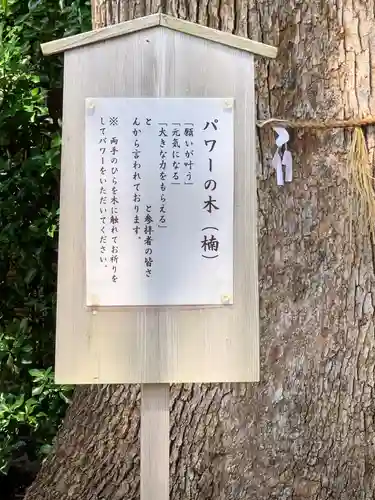 パワーの木（楠）
「願いが叶う」
「元気になる」
「大きな力を貰える」
と　　　　と参拝者の皆さ
んから言われております。
※　両手のひらを木に触れてお祈りを
してパワーをいただいてください。